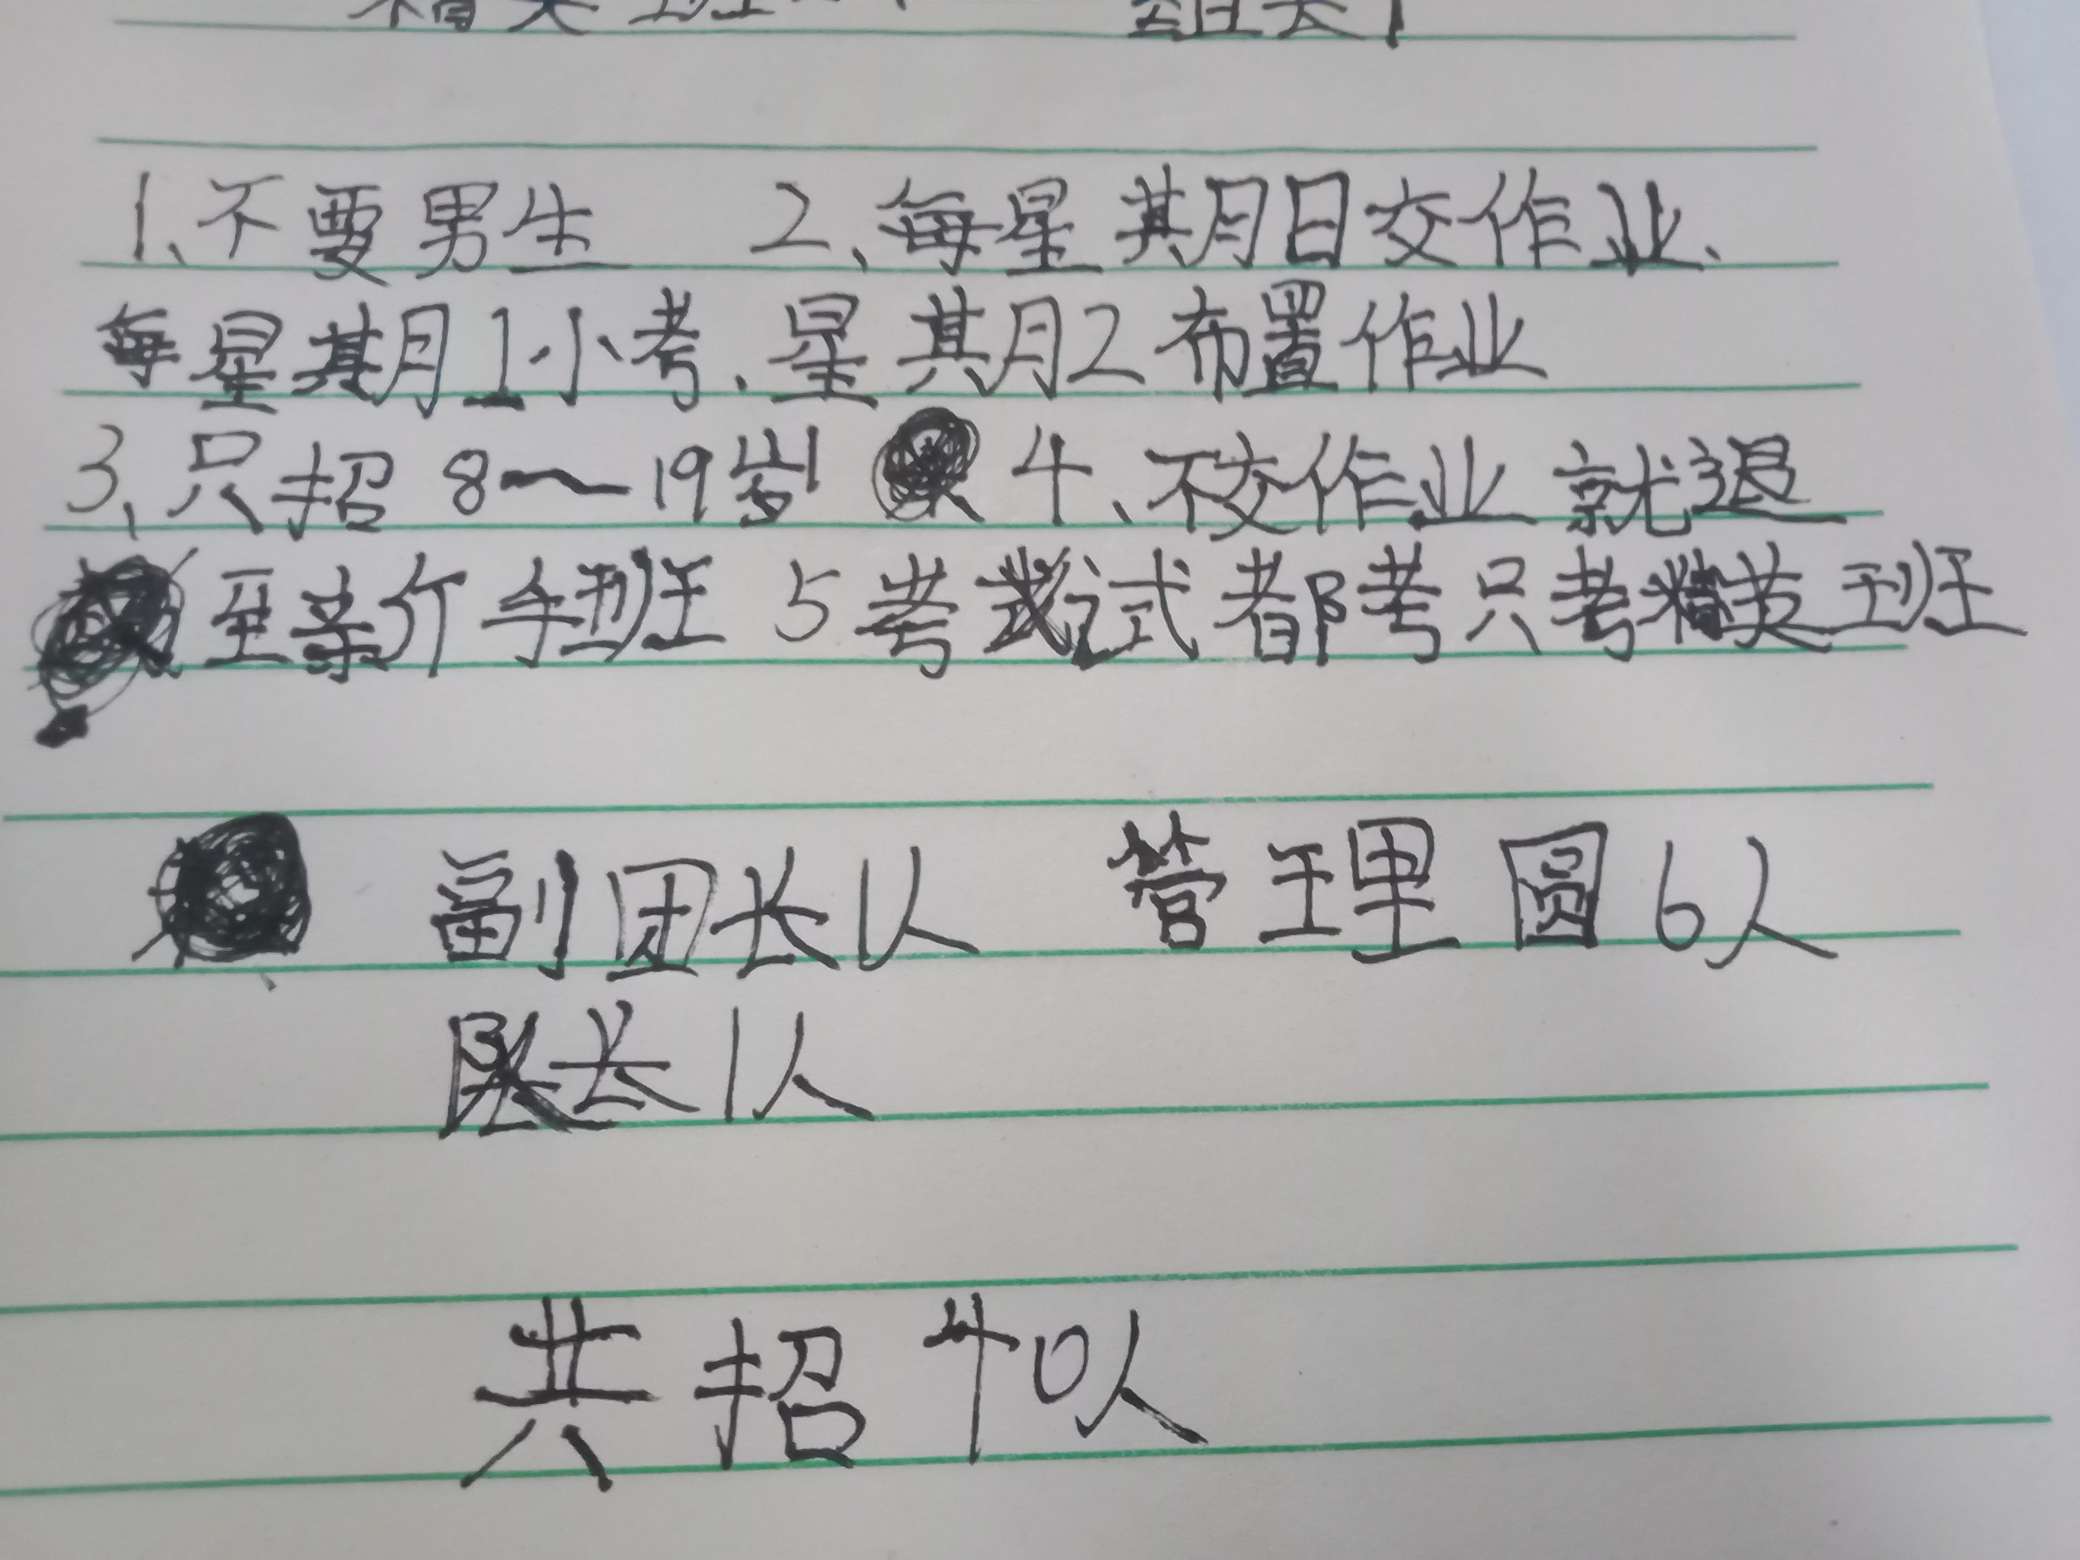 1、不要男生 2、每星期日交作业、
每星期1小考、星期2布置作业
3、只招 8~19岁 4、不交作业就退
至亲斤手班 5考试试都考只考精英班
副团长1人 管理圆6人
队长1人
共招40人